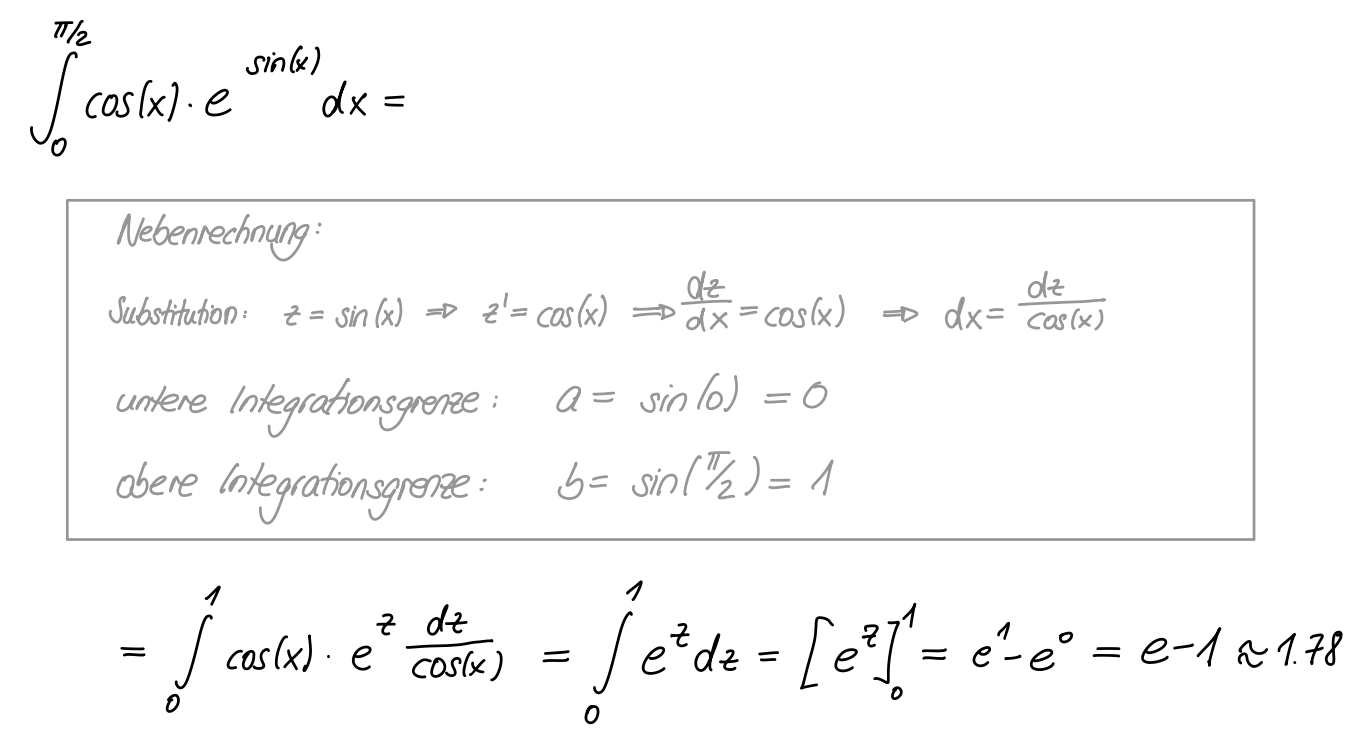 ∫₀^{π/2} cos(x) · e^{sin(x)} dx =
Nebenrechnung:
Substitution: z = sin(x) ⇒ z' = cos(x) ⇒ dz/dx = cos(x) ⇒ dx = dz/cos(x)
untere Integrationsgrenze: a = sin(0) = 0
obere Integrationsgrenze: b = sin(π/2) = 1
= ∫₀¹ cos(x) · e^z dz/cos(x) = ∫₀¹ e^z dz = [e^z]₀¹ = e¹ - e⁰ = e - 1 ≈ 1.78